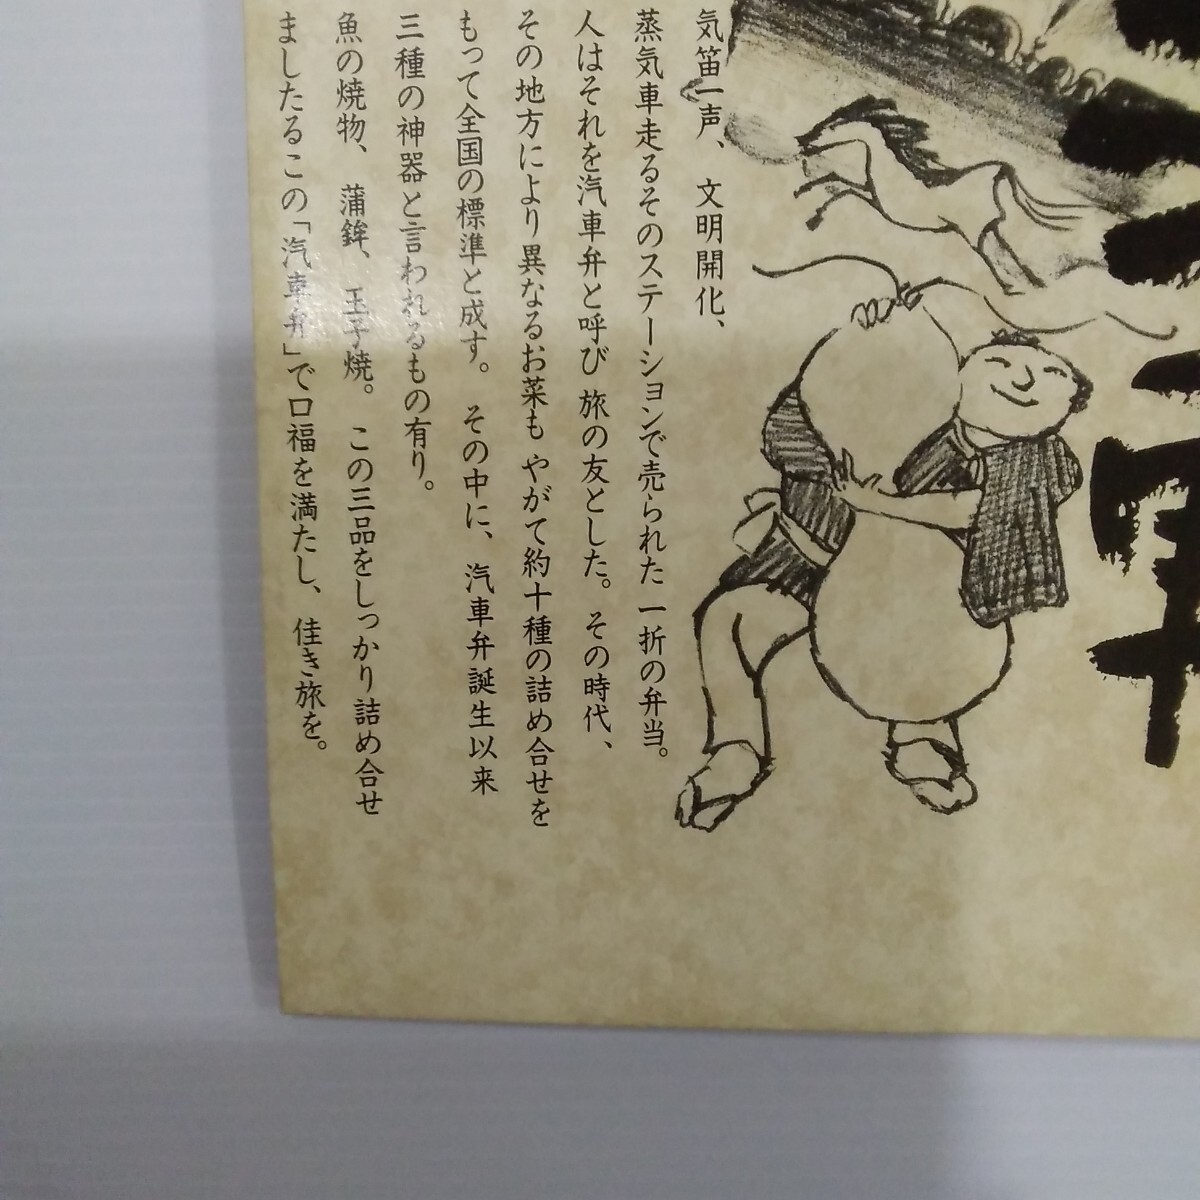 気笛一声、文明開化、
蒸気車走るそのステーションで売られた一折の弁当。
人はそれを汽車弁と呼び 旅の友とした。その時代、
その地方により異なるお菜も やがて約十種の詰め合せを
もって全国の標準と成す。その中に、汽車弁誕生以来
三種の神器と言われるもの有り。
魚の焼物、蒲鉾、玉子焼。この三品をしっかり詰め合せ
ましたるこの「汽車弁」で口福を満たし、佳き旅を。